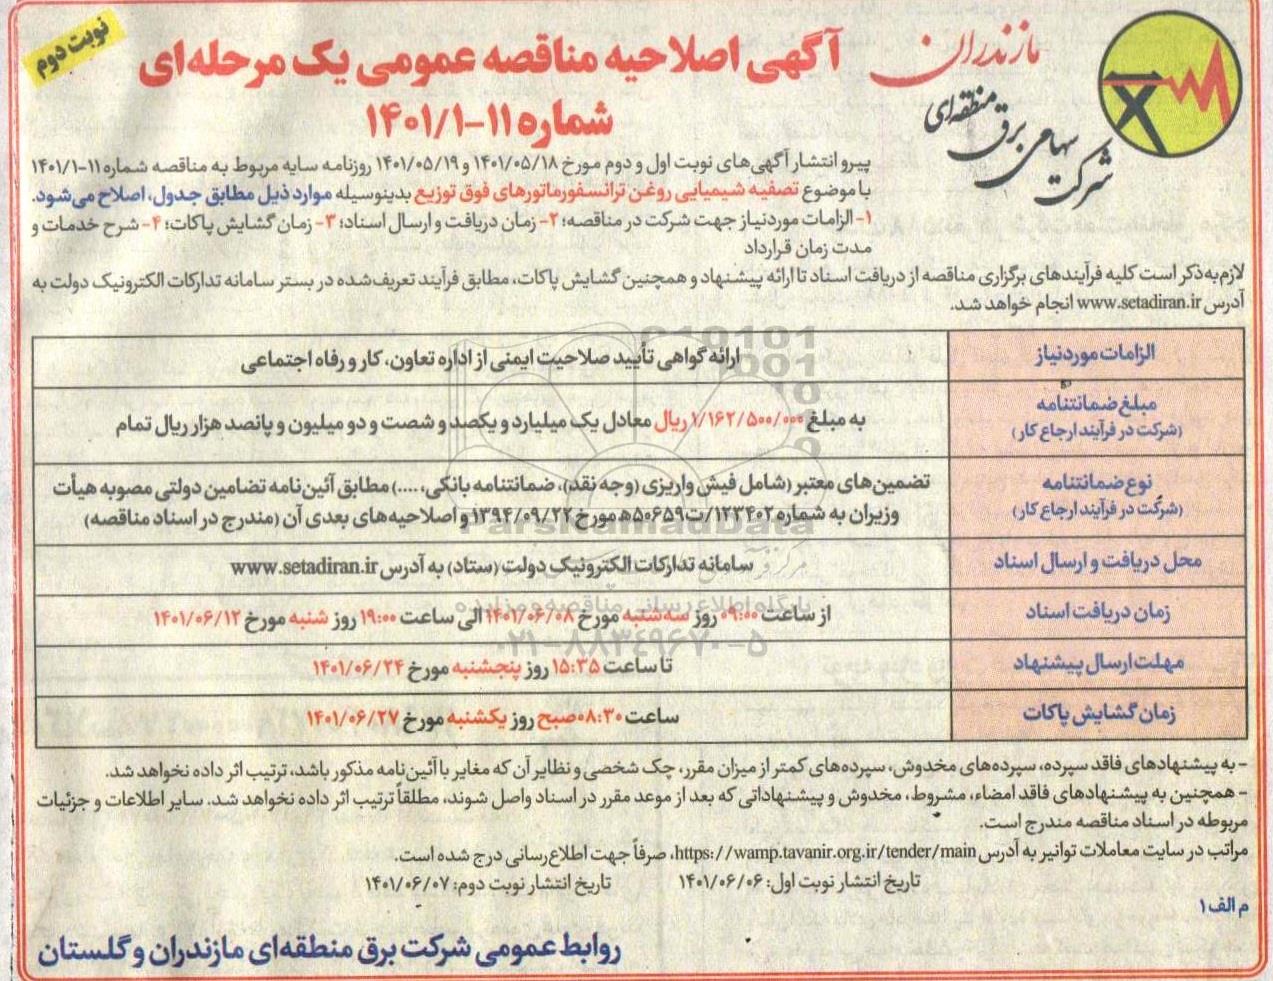 نوبت دوم
مازندران
شرکت سهامی برق منطقه‌ای
آگهی اصلاحیه مناقصه عمومی یک مرحله‌ای
شماره ۱۱-۱۴۰۱/۱
پیرو انتشار آگهی‌های نوبت اول و دوم مورخ ۱۴۰۱/۰۵/۱۸ و ۱۴۰۱/۰۵/۱۹ روزنامه سایه مربوط به مناقصه شماره ۱۱-۱۴۰۱/۱
با موضوع تصفیه شیمیایی روغن ترانسفورماتورهای فوق توزیع بدینوسیله موارد ذیل مطابق جدول، اصلاح می‌شود.
۱- الزامات موردنیاز جهت شرکت در مناقصه؛ ۲- زمان دریافت و ارسال اسناد؛ ۳- زمان گشایش پاکات؛ ۴- شرح خدمات و
مدت زمان قرارداد
لازم به ذکر است کلیه فرآیندهای برگزاری مناقصه از دریافت اسناد تا ارائه پیشنهاد و همچنین گشایش پاکات، مطابق فرآیند تعریف شده در بستر سامانه تدارکات الکترونیک دولت به
آدرس www.setadiran.ir انجام خواهد شد.
الزامات موردنیاز
ارائه گواهی تأیید صلاحیت ایمنی از اداره تعاون، کار و رفاه اجتماعی
مبلغ ضمانتنامه
(شرکت در فرآیند ارجاع کار)
به مبلغ ۱/۱۶۲/۵۰۰/۰۰۰ ریال معادل یک میلیارد و یکصد و شصت و دو میلیون و پانصد هزار ریال تمام
نوع ضمانتنامه
(شرکت در فرآیند ارجاع کار)
تضمین‌های معتبر (شامل فیش واریزی (وجه نقد)، ضمانتنامه بانکی، ....) مطابق آئین‌نامه تضامین دولتی مصوبه هیأت
وزیران به شماره ۱۲۳۴۰۲/ت۵۰۶۵۹ه مورخ ۱۳۹۴/۰۹/۲۲ و اصلاحیه‌های بعدی آن (مندرج در اسناد مناقصه)
محل دریافت و ارسال اسناد
سامانه تدارکات الکترونیک دولت (ستاد) به آدرس www.setadiran.ir
زمان دریافت اسناد
از ساعت ۰۹:۰۰ روز سه‌شنبه مورخ ۱۴۰۱/۰۶/۰۸ الی ساعت ۱۹:۰۰ روز شنبه مورخ ۱۴۰۱/۰۶/۱۲
مهلت ارسال پیشنهاد
تا ساعت ۱۵:۳۵ روز پنجشنبه مورخ ۱۴۰۱/۰۶/۲۴
زمان گشایش پاکات
ساعت ۰۸:۳۰ صبح روز یکشنبه مورخ ۱۴۰۱/۰۶/۲۷
ParsNamadData
پایگاه اطلاع رسانی مناقصه و مزایده
۰۲۱-۸۸۳۴۹۶۷۰-۵
- به پیشنهادهای فاقد سپرده، سپرده‌های مخدوش، سپرده‌های کمتر از میزان مقرر، چک شخصی و نظایر آن که مغایر با آئین‌نامه مذکور باشد، ترتیب اثر داده نخواهد شد.
- همچنین به پیشنهادهای فاقد امضاء، مشروط، مخدوش و پیشنهاداتی که بعد از موعد مقرر در اسناد واصل شوند، مطلقاً ترتیب اثر داده نخواهد شد. سایر اطلاعات و جزئیات
مربوطه در اسناد مناقصه مندرج است.
مراتب در سایت معاملات توانیر به آدرس https://wamp.tavanir.org.ir/tender/main، صرفاً جهت اطلاع‌رسانی درج شده است.
تاریخ انتشار نوبت اول: ۱۴۰۱/۰۶/۰۶ تاریخ انتشار نوبت دوم: ۱۴۰۱/۰۶/۰۷
م الف ۱
روابط عمومی شرکت برق منطقه‌ای مازندران و گلستان